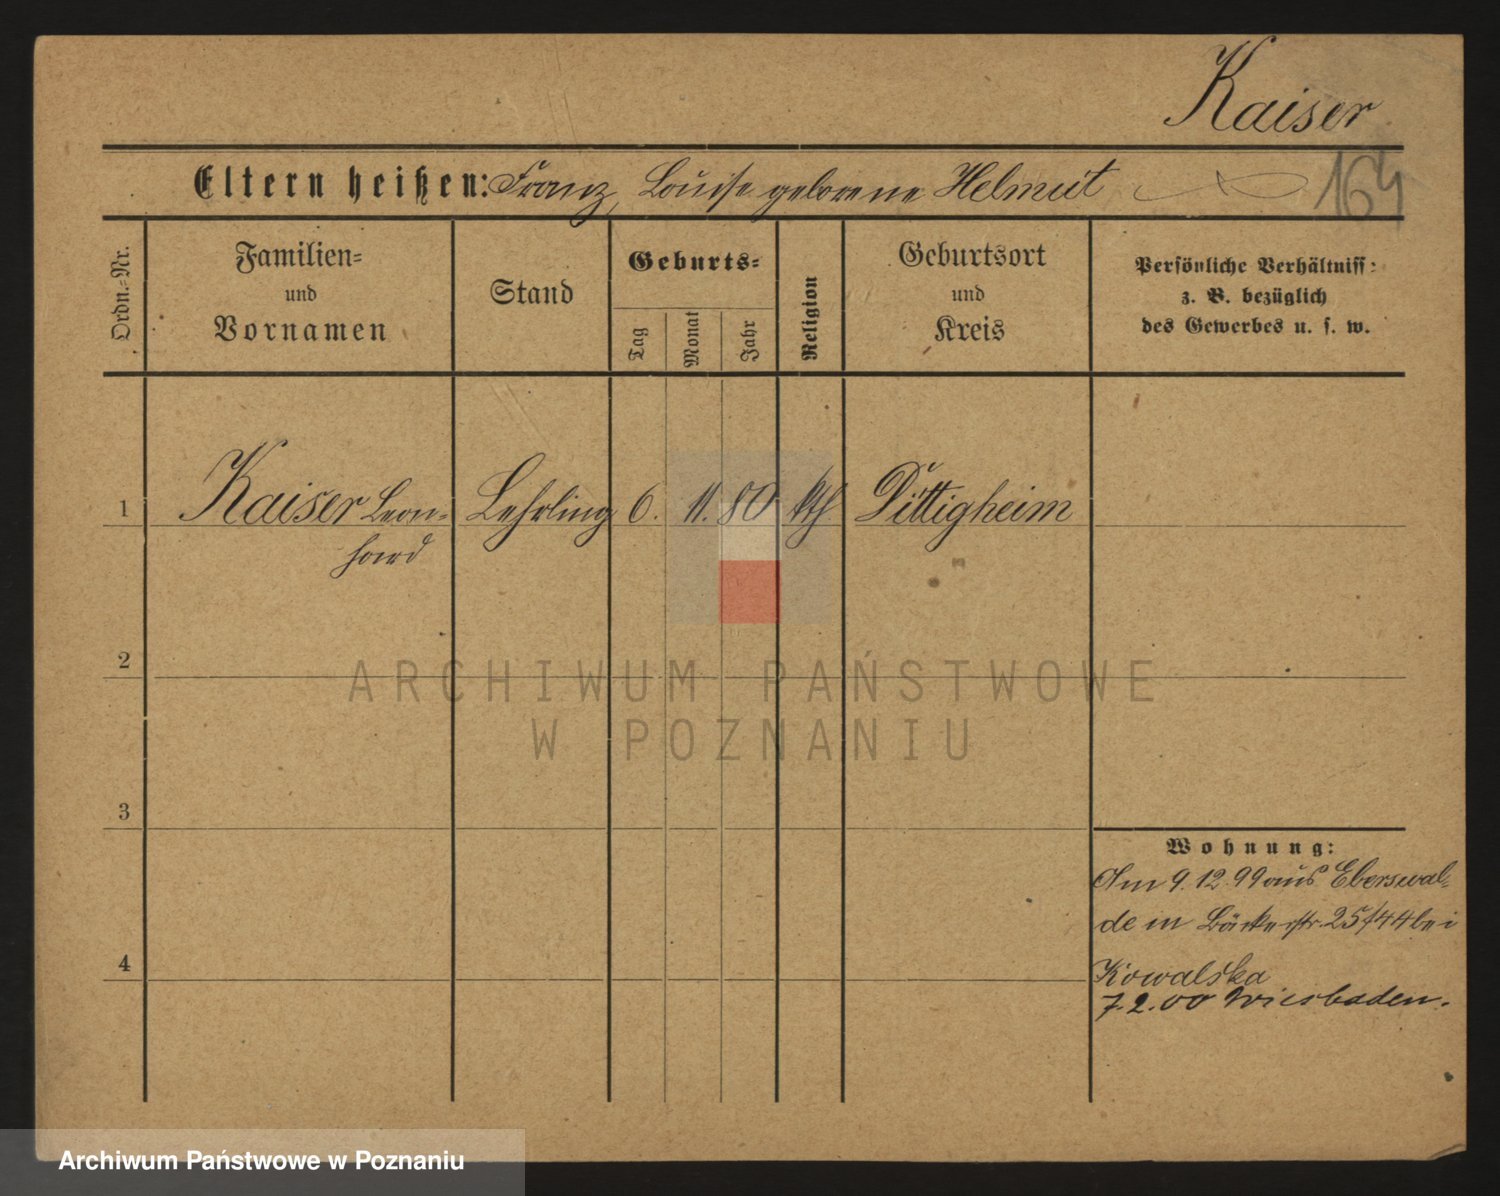 Kaiser
Eltern heißen: Franz, Louise geborene Helmut
164
Ordn.-Nr.
Familien-
und
Vornamen
Stand
Geburts-
Tag
Monat
Jahr
Religion
Geburtsort
und
Kreis
Persönliche Verhältniss:
z. B. bezüglich
des Gewerbes u. s. w.
1 Kaiser Leon- Lehrling 6. 11. 80 kth. Dittigheim
hard
2
ARCHIWUM PAŃSTWOWE
W POZNANIU
3
Wohnung:
Am 9.12.99 aus Eberswal-
de in Bäckerstr. 25/44 bei
4
Kowalska
7.2.00 Wiesbaden.
Archiwum Państwowe w Poznaniu